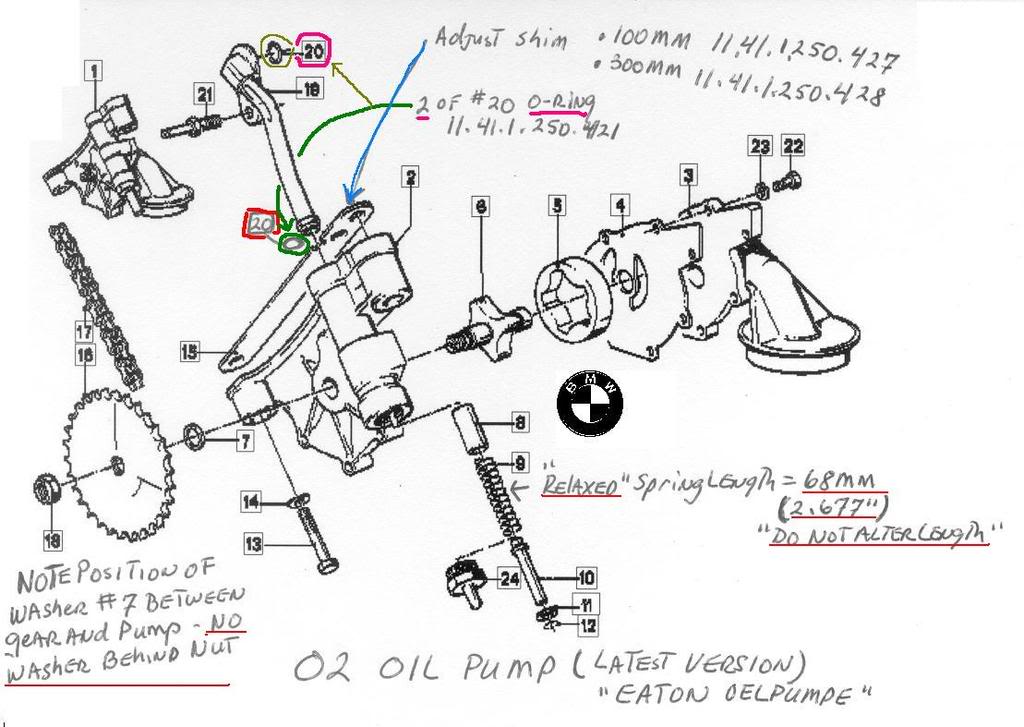 Adjust shim • 100MM 11.41.1.250.427
• 300MM 11.41.1.250.428
20
1
19
21
2 OF #20 O-RING
11.41.1.250.421
23
22
3
2
6
5
4
20
17
16
15
BMW
7
8
9
"RELAXED" SPRING LENGTH = 68MM
(2.677")
"DO NOT ALTER LENGTH"
18
14
13
24
10
11
12
NOTE POSITION OF
WASHER #7 BETWEEN
gEAR AND PUMP - NO
WASHER BEHIND NUT
O2 OIL PUMP (LATEST VERSION)
"EATON OELPUMPE"